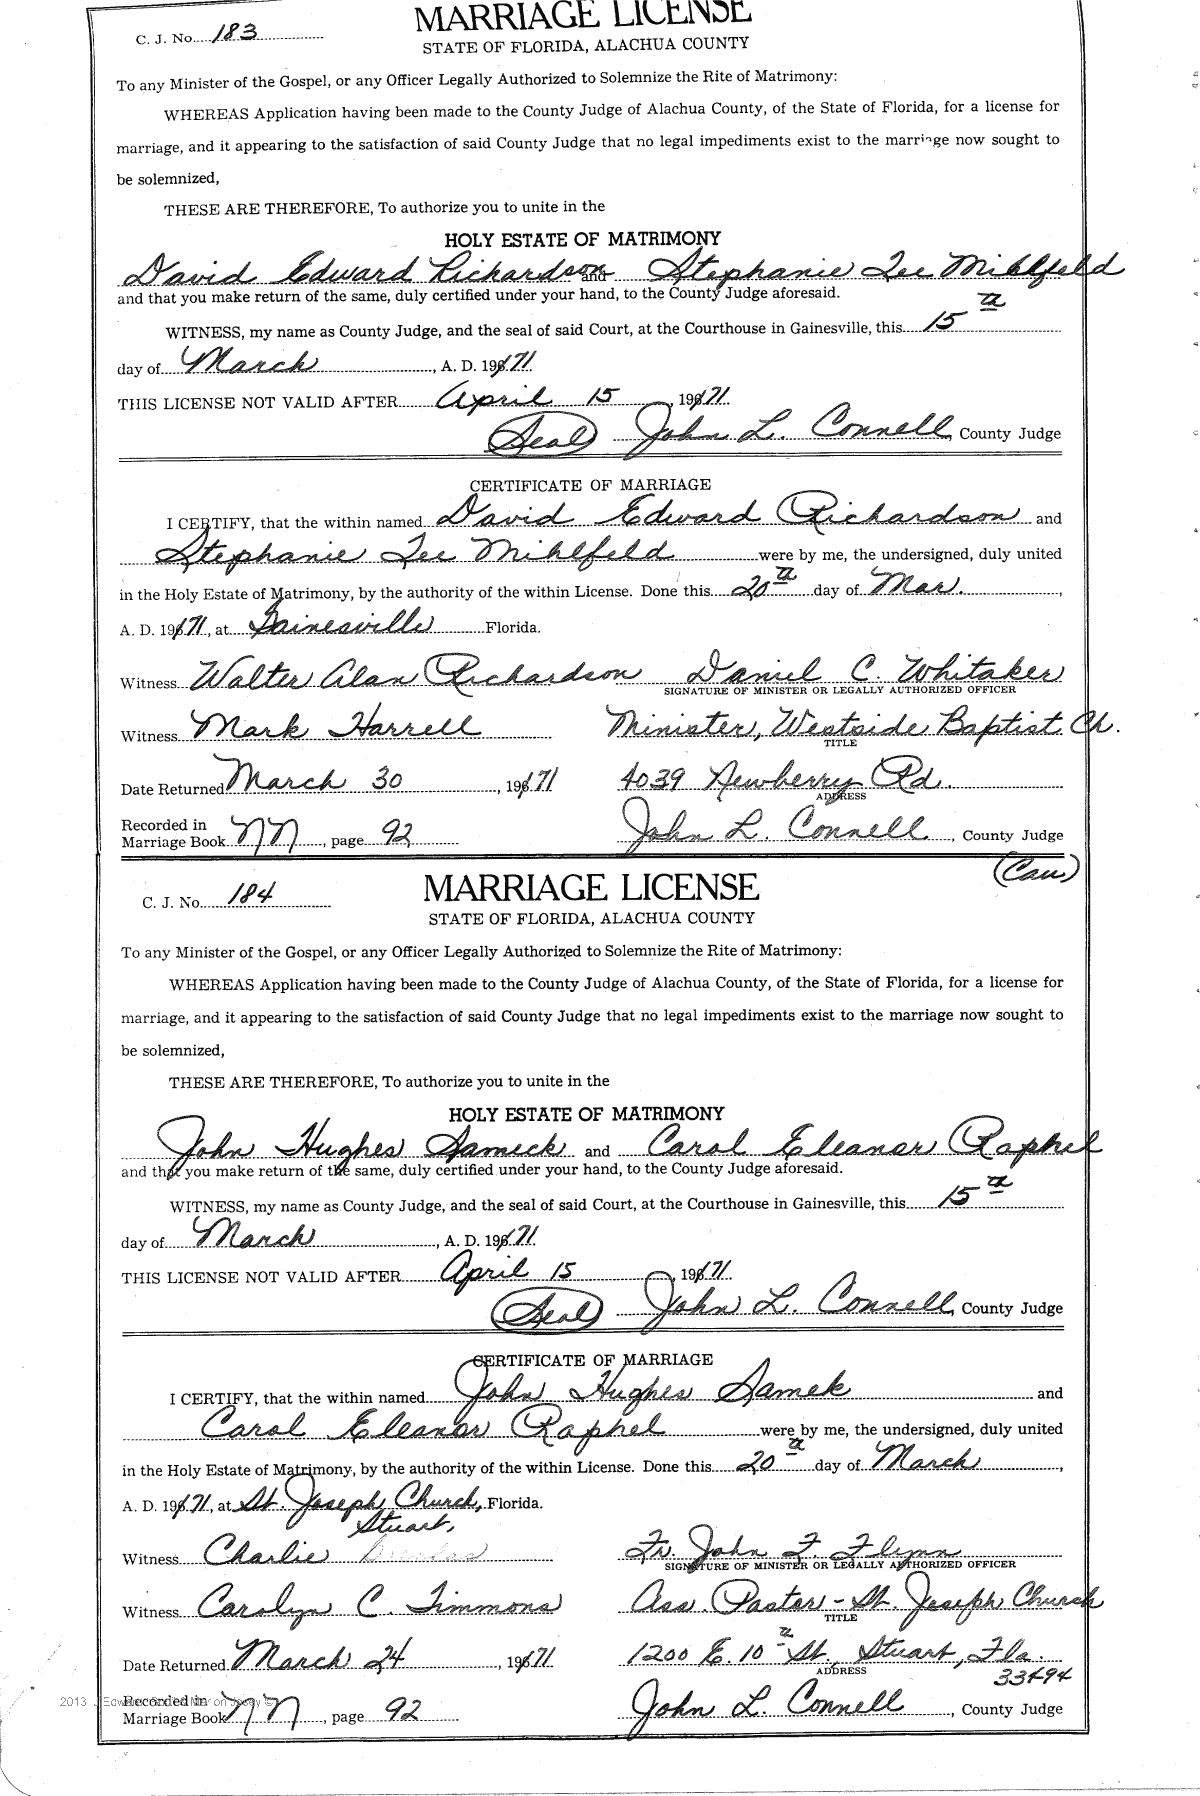 MARRIAGE LICENSE
C. J. No. 183
STATE OF FLORIDA, ALACHUA COUNTY
To any Minister of the Gospel, or any Officer Legally Authorized to Solemnize the Rite of Matrimony:
WHEREAS Application having been made to the County Judge of Alachua County, of the State of Florida, for a license for
marriage, and it appearing to the satisfaction of said County Judge that no legal impediments exist to the marriage now sought to
be solemnized,
THESE ARE THEREFORE, To authorize you to unite in the
HOLY ESTATE OF MATRIMONY
David Edward Richardson and Stephanie Lee Mihlfeld
and that you make return of the same, duly certified under your hand, to the County Judge aforesaid.
WITNESS, my name as County Judge, and the seal of said Court, at the Courthouse in Gainesville, this 15th
day of March, A. D. 1971.
THIS LICENSE NOT VALID AFTER April 15, 1971.
(Seal) John L. Connell, County Judge
CERTIFICATE OF MARRIAGE
I CERTIFY, that the within named David Edward Richardson and
Stephanie Lee Mihlfeld were by me, the undersigned, duly united
in the Holy Estate of Matrimony, by the authority of the within License. Done this 20th day of Mar.,
A. D. 1971, at Gainesville Florida.
Witness Walter Alan Richardson Daniel C. Whitaker
SIGNATURE OF MINISTER OR LEGALLY AUTHORIZED OFFICER
Witness Mark Harrell Minister, Westside Baptist Ch.
TITLE
Date Returned March 30, 1971 4039 Newberry Rd.
ADDRESS
Recorded in
Marriage Book NN, page 92 John L. Connell, County Judge
(Cau)
C. J. No. 184 MARRIAGE LICENSE
STATE OF FLORIDA, ALACHUA COUNTY
To any Minister of the Gospel, or any Officer Legally Authorized to Solemnize the Rite of Matrimony:
WHEREAS Application having been made to the County Judge of Alachua County, of the State of Florida, for a license for
marriage, and it appearing to the satisfaction of said County Judge that no legal impediments exist to the marriage now sought to
be solemnized,
THESE ARE THEREFORE, To authorize you to unite in the
HOLY ESTATE OF MATRIMONY
John Hughes Sameck and Carol Eleanor Raphel
and that you make return of the same, duly certified under your hand, to the County Judge aforesaid.
WITNESS, my name as County Judge, and the seal of said Court, at the Courthouse in Gainesville, this 15th
day of March, A. D. 1971.
THIS LICENSE NOT VALID AFTER April 15, 1971.
(Seal) John L. Connell, County Judge
CERTIFICATE OF MARRIAGE
I CERTIFY, that the within named John Hughes Samek and
Carol Eleanor Raphel were by me, the undersigned, duly united
in the Holy Estate of Matrimony, by the authority of the within License. Done this 20th day of March,
A. D. 1971, at St. Joseph Church, Florida.
Stuart,
Witness Charlie Fr. John F. Flynn
SIGNATURE OF MINISTER OR LEGALLY AUTHORIZED OFFICER
Witness Carolyn C. Timmons Ass. Pastor - St. Joseph Church
TITLE
Date Returned March 24, 1971 1200 E. 10th St. Stuart, Fla.
ADDRESS 33494
2013
Recorded in
Marriage Book NN, page 92 John L. Connell, County Judge